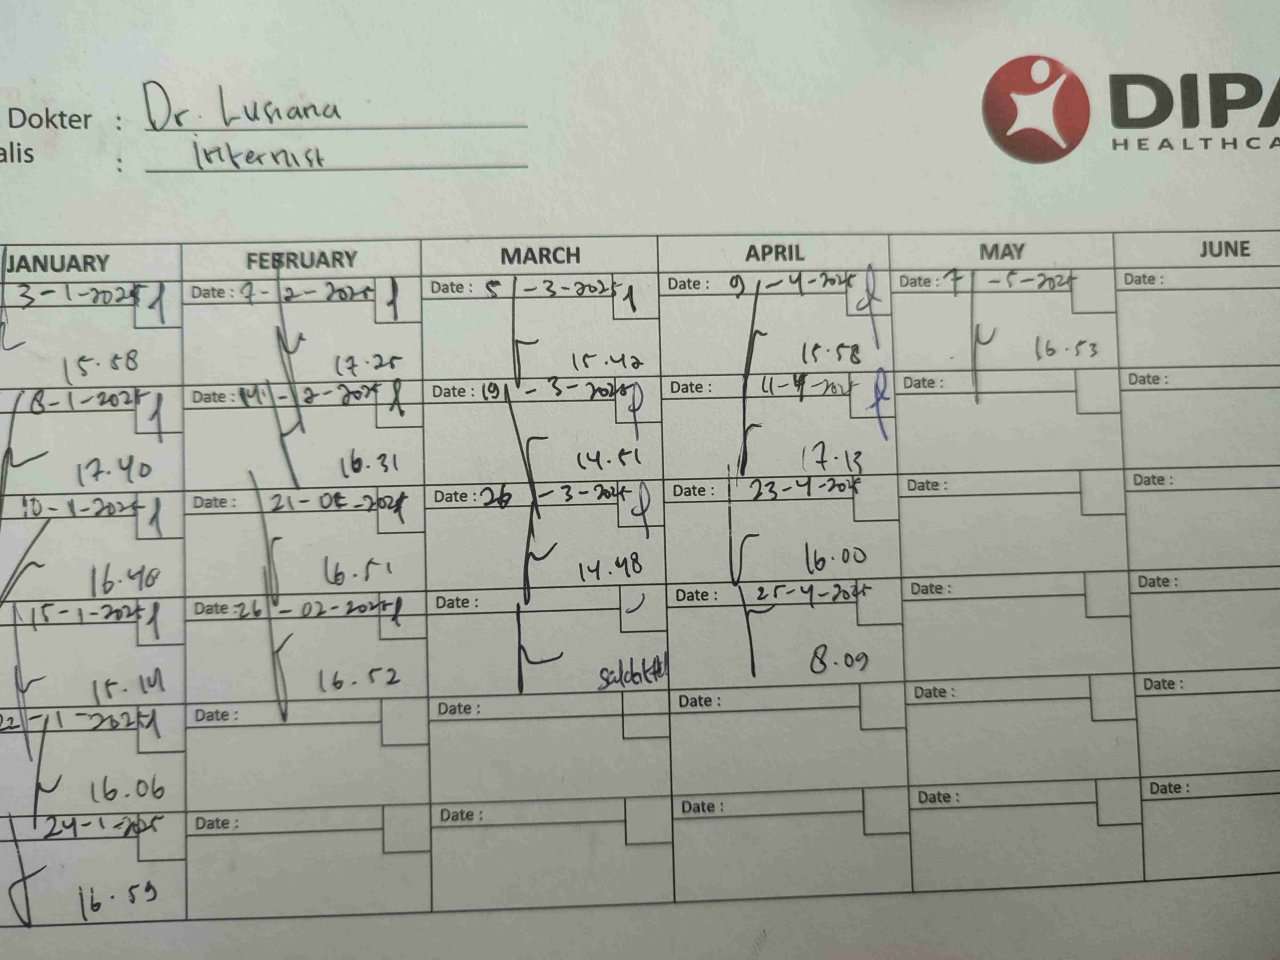 Dokter : Dr. Lusiana
alis : Internist
DIPA
HEALTHCA
JANUARY FEBRUARY MARCH APRIL MAY JUNE
3-1-2025 Date : 7-2-2025 Date : 5-3-2025 Date : 9-4-2025 Date : 7-5-2025 Date :
15.58 17.25 15.42 15.58 16.53
8-1-2025 Date : 14-2-2025 Date : 19-3-2025 Date : 11-4-2025 Date : Date :
17.40 16.31 14.51 17.13
10-1-2025 Date : 21-02-2025 Date : 26-3-2025 Date : 23-4-2025 Date : Date :
16.48 16.51 14.48 16.00
15-1-2025 Date : 26-02-2025 Date : Date : 25-4-2025 Date : Date :
15.14 16.52 8.09
22-1-2025 Date : Date : Date : Date : Date :
16.06
24-1-2025 Date : Date : Date : Date : Date :
16.59